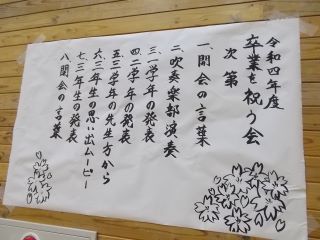 令和四年度
卒業を祝う会
次第
一、開会の言葉
二、吹奏楽部演奏
三、一学年の発表
四、二学年の発表
五、三学年の先生方から
六、三年生の思い出ムービー
七、三年生の発表
八、閉会の言葉